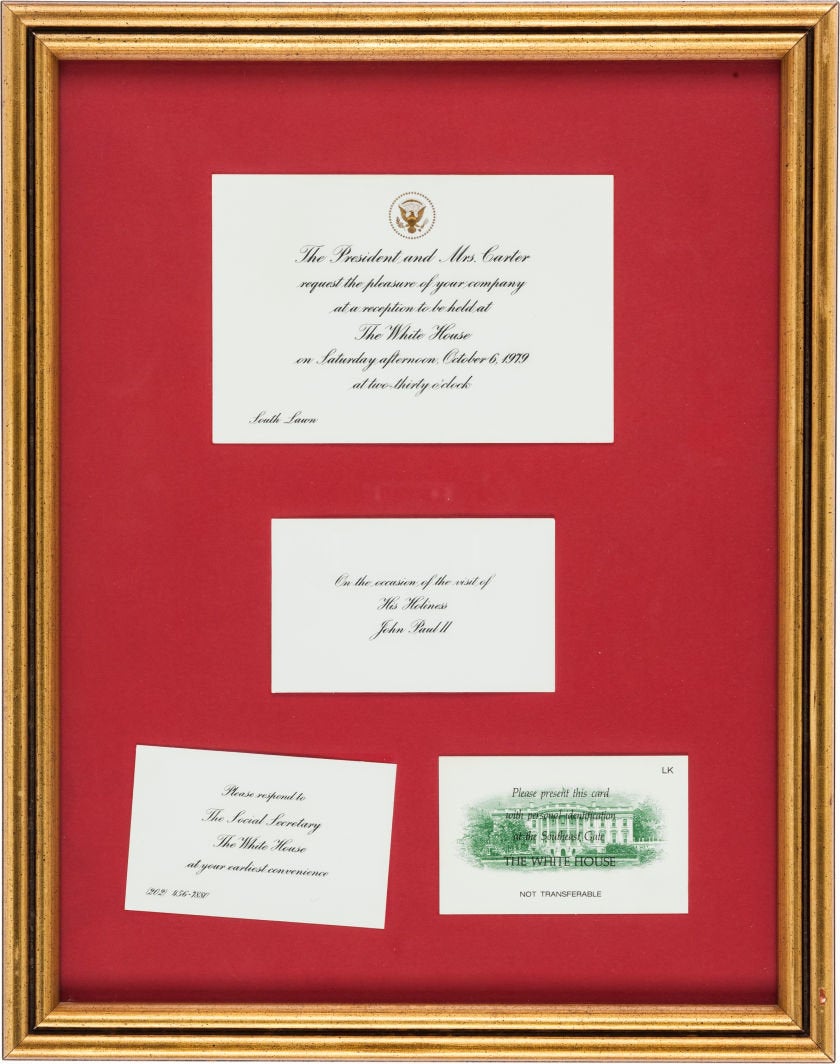 The President and Mrs. Carter
request the pleasure of your company
at a reception to be held at
The White House
on Saturday afternoon, October 6, 1979
at two-thirty o'clock
South Lawn
On the occasion of the visit of
His Holiness
John Paul II
Please respond to
The Social Secretary
The White House
at your earliest convenience
(202) 456-7880
LK
Please present this card
with personal identification
at the Southeast Gate
THE WHITE HOUSE
NOT TRANSFERABLE